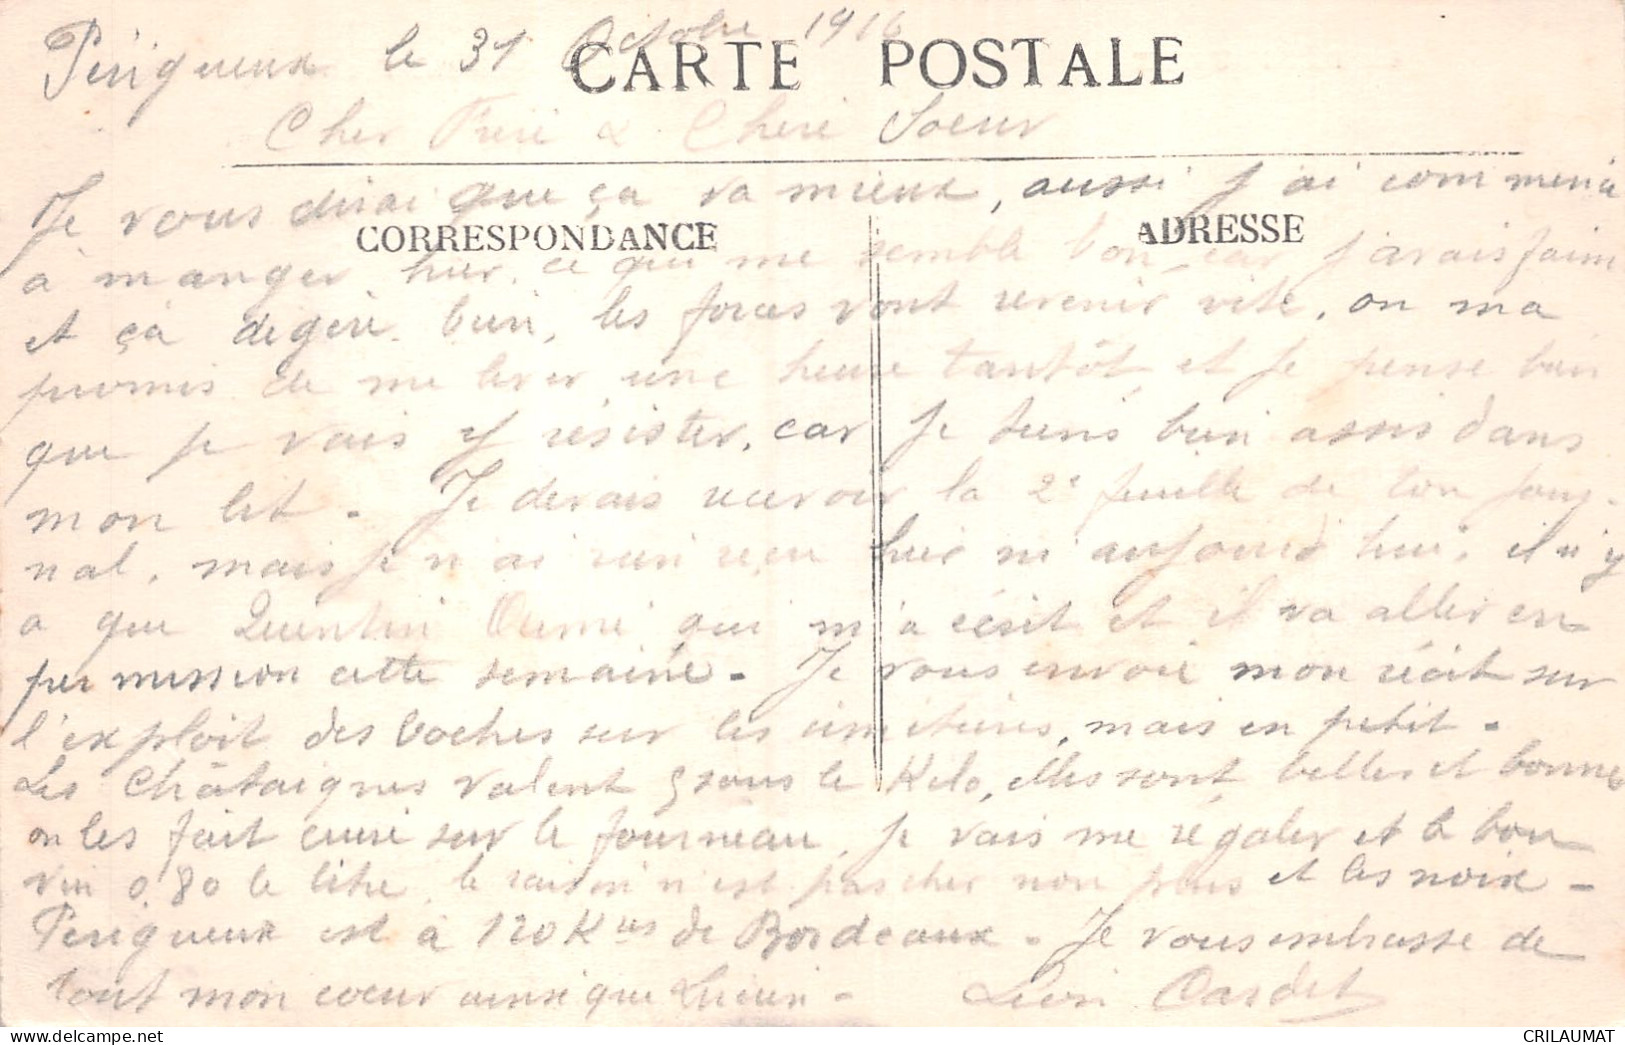 Périgueux le 31 Octobre 1916
CARTE POSTALE
Cher Frère & Chère Soeur
Je vous dirai que ça va mieux, aussi j'ai commencé
CORRESPONDANCE
ADRESSE
à manger hier, ce qui me semble bon, car j'avais faim
et ça digère bien, les forces vont revenir vite, on m'a
promis de me lever une heure tantôt, et je pense bien
que je vais y résister, car je suis bien assis dans
mon lit - Je devais recevoir la 2e feuille de ton jour-
nal, mais je n'ai rien reçu hier ni aujourd'hui, il n'y
a que Quentin qui m'a écrit et il va aller en
permission cette semaine - Je vous envoie mon récit sur
l'exploit des boches sur les cimetières, mais en petit -
Les Châtaignes valent sous le Kilo, elles sont belles et bonnes
on les fait cuire sur le fourneau, je vais me régaler et le bon
vin 0,80 le litre, le raisin n'est pas cher non plus et les noix -
Périgueux est à 120 Kms de Bordeaux - Je vous embrasse de
tout mon coeur ainsi que Lucien - Léon Dardet
CRILAUMAT